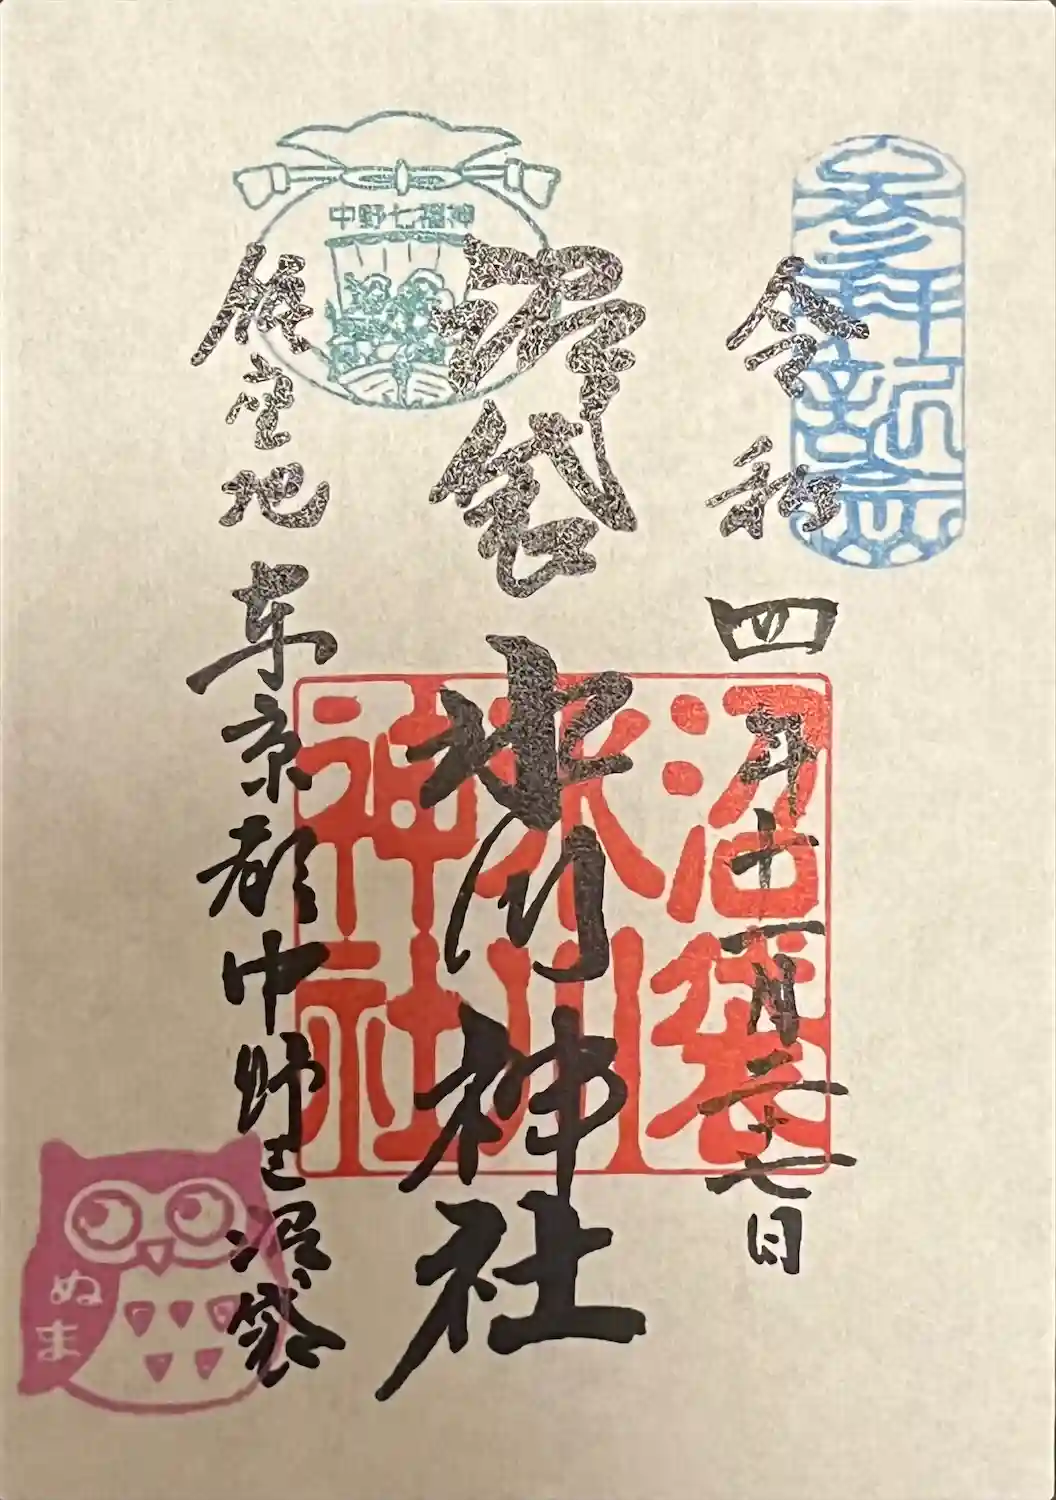 令和四年十一月二十七日
沼袋氷川神社
鎮座地 東京都中野区沼袋
中野七福神
沼袋
氷川
神社
ぬま